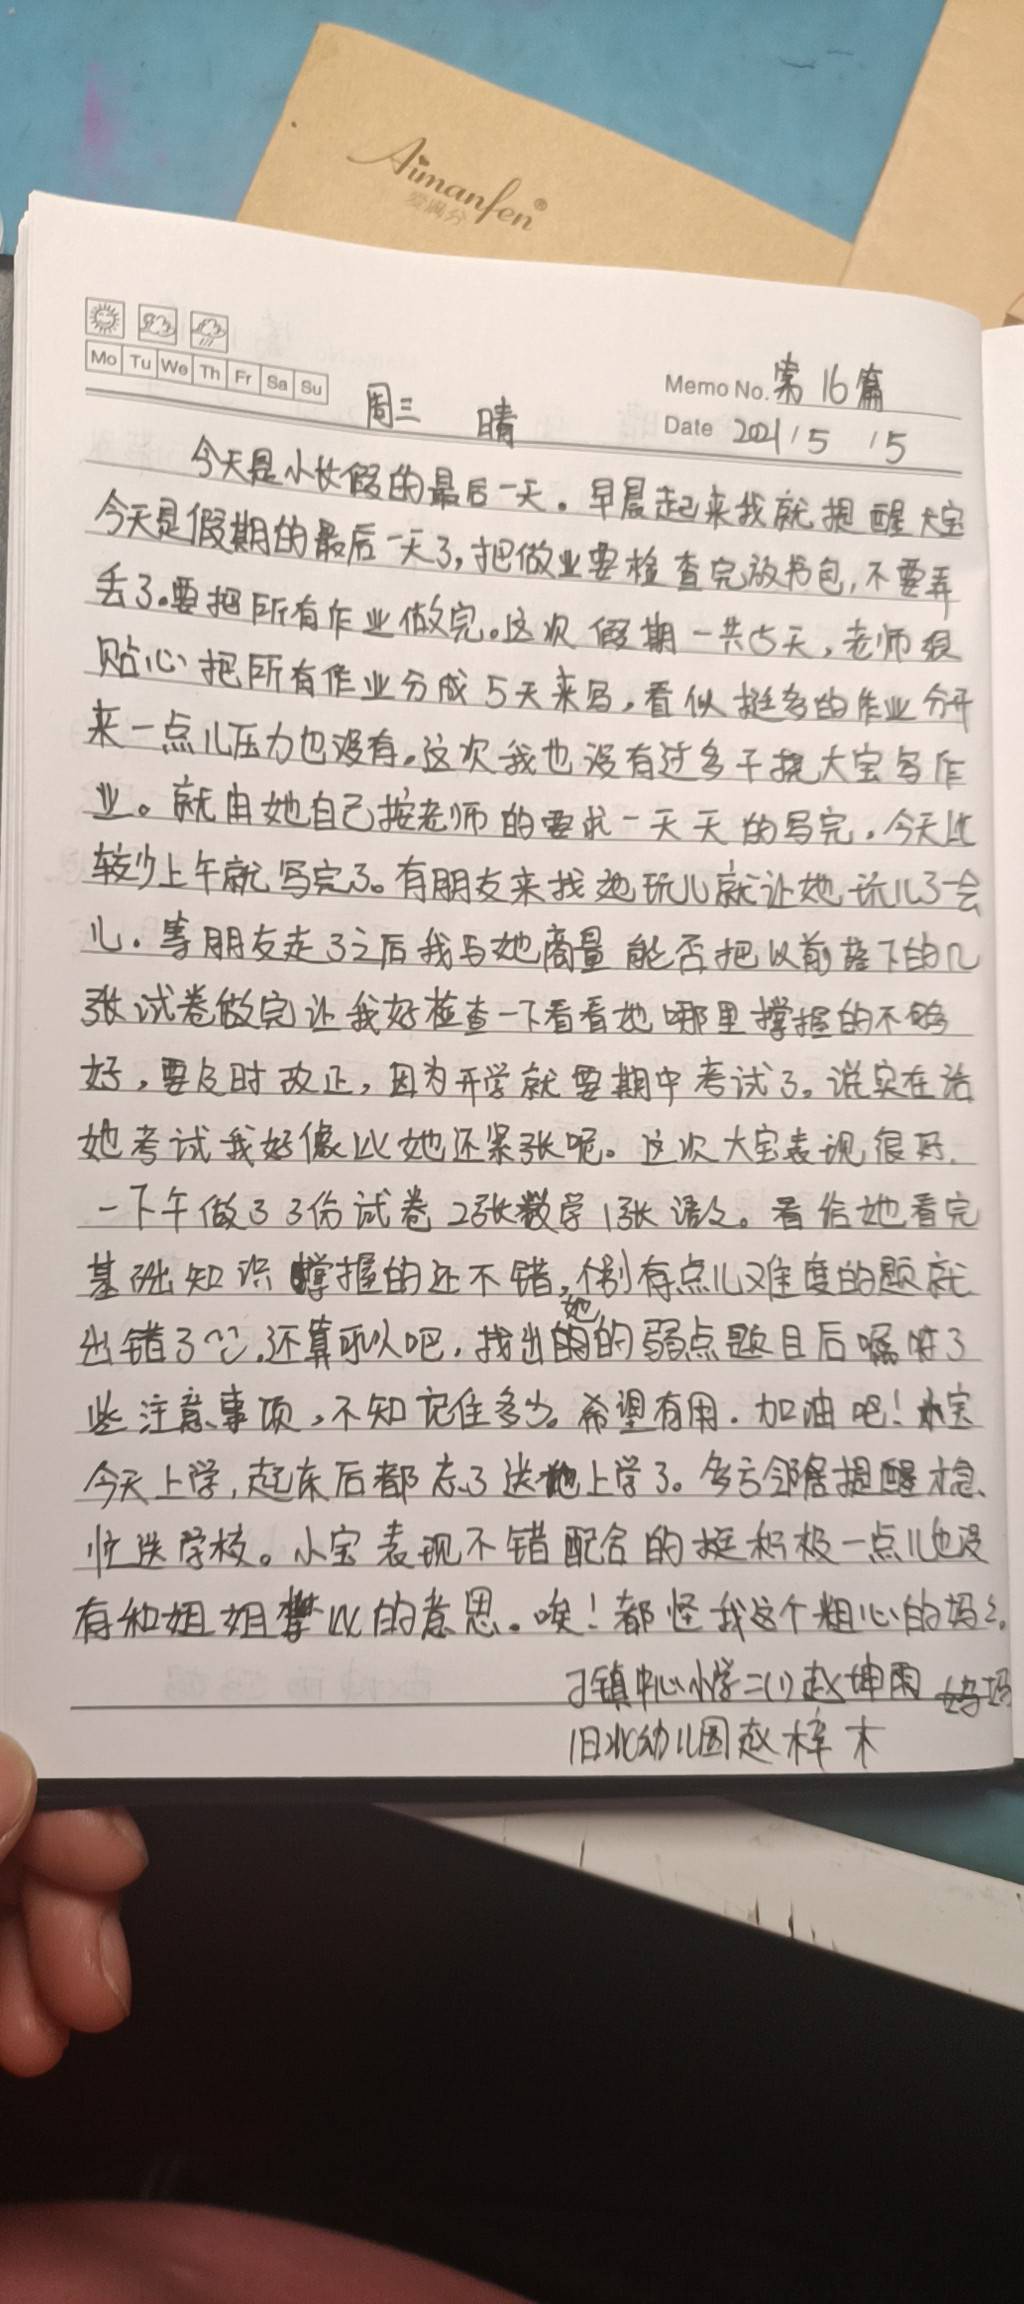 Aimanfen®
爱满分
Mo Tu We Th Fr Sa Su
Memo No. 第16篇
周三 晴
Date 2021/5/5
今天是小长假的最后一天。早晨起来我就提醒大宝
今天是假期的最后一天了,把做业要检查完放书包,不要弄
丢了。要把所有作业做完。这次假期一共5天,老师很
贴心把所有作业分成5天来写,看似挺多的作业分开
来一点儿压力也没有。这次我也没有过多干挠大宝写作
业。就由她自己按老师的要求一天天的写完。今天比
较少上午就写完了。有朋友来找她玩儿就让她玩儿了一会
儿。等朋友走了之后我与她商量能否把以前落下的几
张试卷做完让我好检查一下看看她哪里撑握的不够
好,要及时改正,因为开学就要期中考试了。说实在话
她考试我好像比她还紧张呢。这次大宝表现很好.
一下午做了3份试卷2张数学1张语文。着给她看完
基础知识撑握的还不错,个别有点儿难度的题就
出错了~.还算可以吧,找出她的弱点题目后嘱咐了
些注意事项,不知记住多少。希望有用.加油吧!小宝
今天上学,起床后都忘了送她上学了。多亏邻居提醒才急
忙送学校。小宝表现不错配合的挺积极一点儿也没
有和姐姐攀比的意思。唉!都怪我这个粗心的妈妈.
刁镇中心小学二(1)赵坤雨 妈妈
旧北幼儿园赵梓木